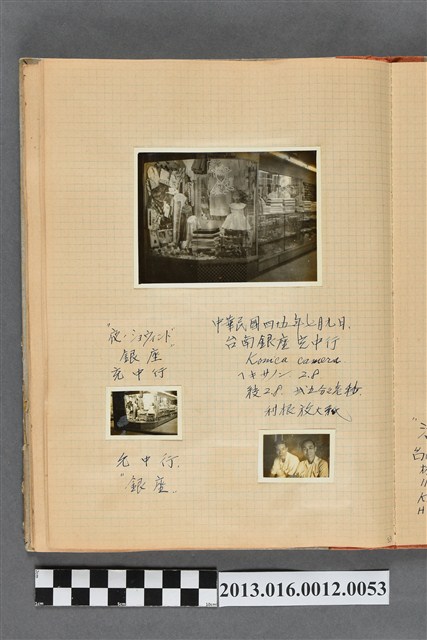 "夜・ショウィンド"
銀座
允中行
允中行.
"銀座"
中華民國四十五年七月九日.
台南銀座允中行
Konica camera.
ヘキサノン. 2.8
2.8.
利根放大紙
2013.016.0012.0053